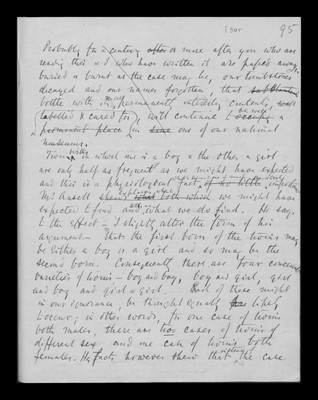 95
Probably for a century after or more after you who are
reading this & I who have written it are passed away,
buried or burnt as the case may be, our tombstones
decayed and our names forgotten, that
bottle with its permanently sterile contents,
labelled & cared for, will continue to occupy a
prominent place in some one of our national
museums.
Twin births in whom one is a boy & the other a girl
are only half as frequent as we might have expected
and this is a physiological fact, of no little importance
Mr Ansell shewed both which we might have
expected to find and what we do find. He says
to the effect – I slightly alter the form of his
argument – that the first born of the twins may
be either a boy or a girl and so may be the
second born. Consequently there are four conceivable
varieties of twins – boy and boy, boy and girl, girl
and boy and girl & girl. Each of these might
in our ignorance, be thought equally likely
to occur; in other words, for one case of twins
both males, there are two cases of twins of
different sex and one case of twins both
females. His facts however shew that the case